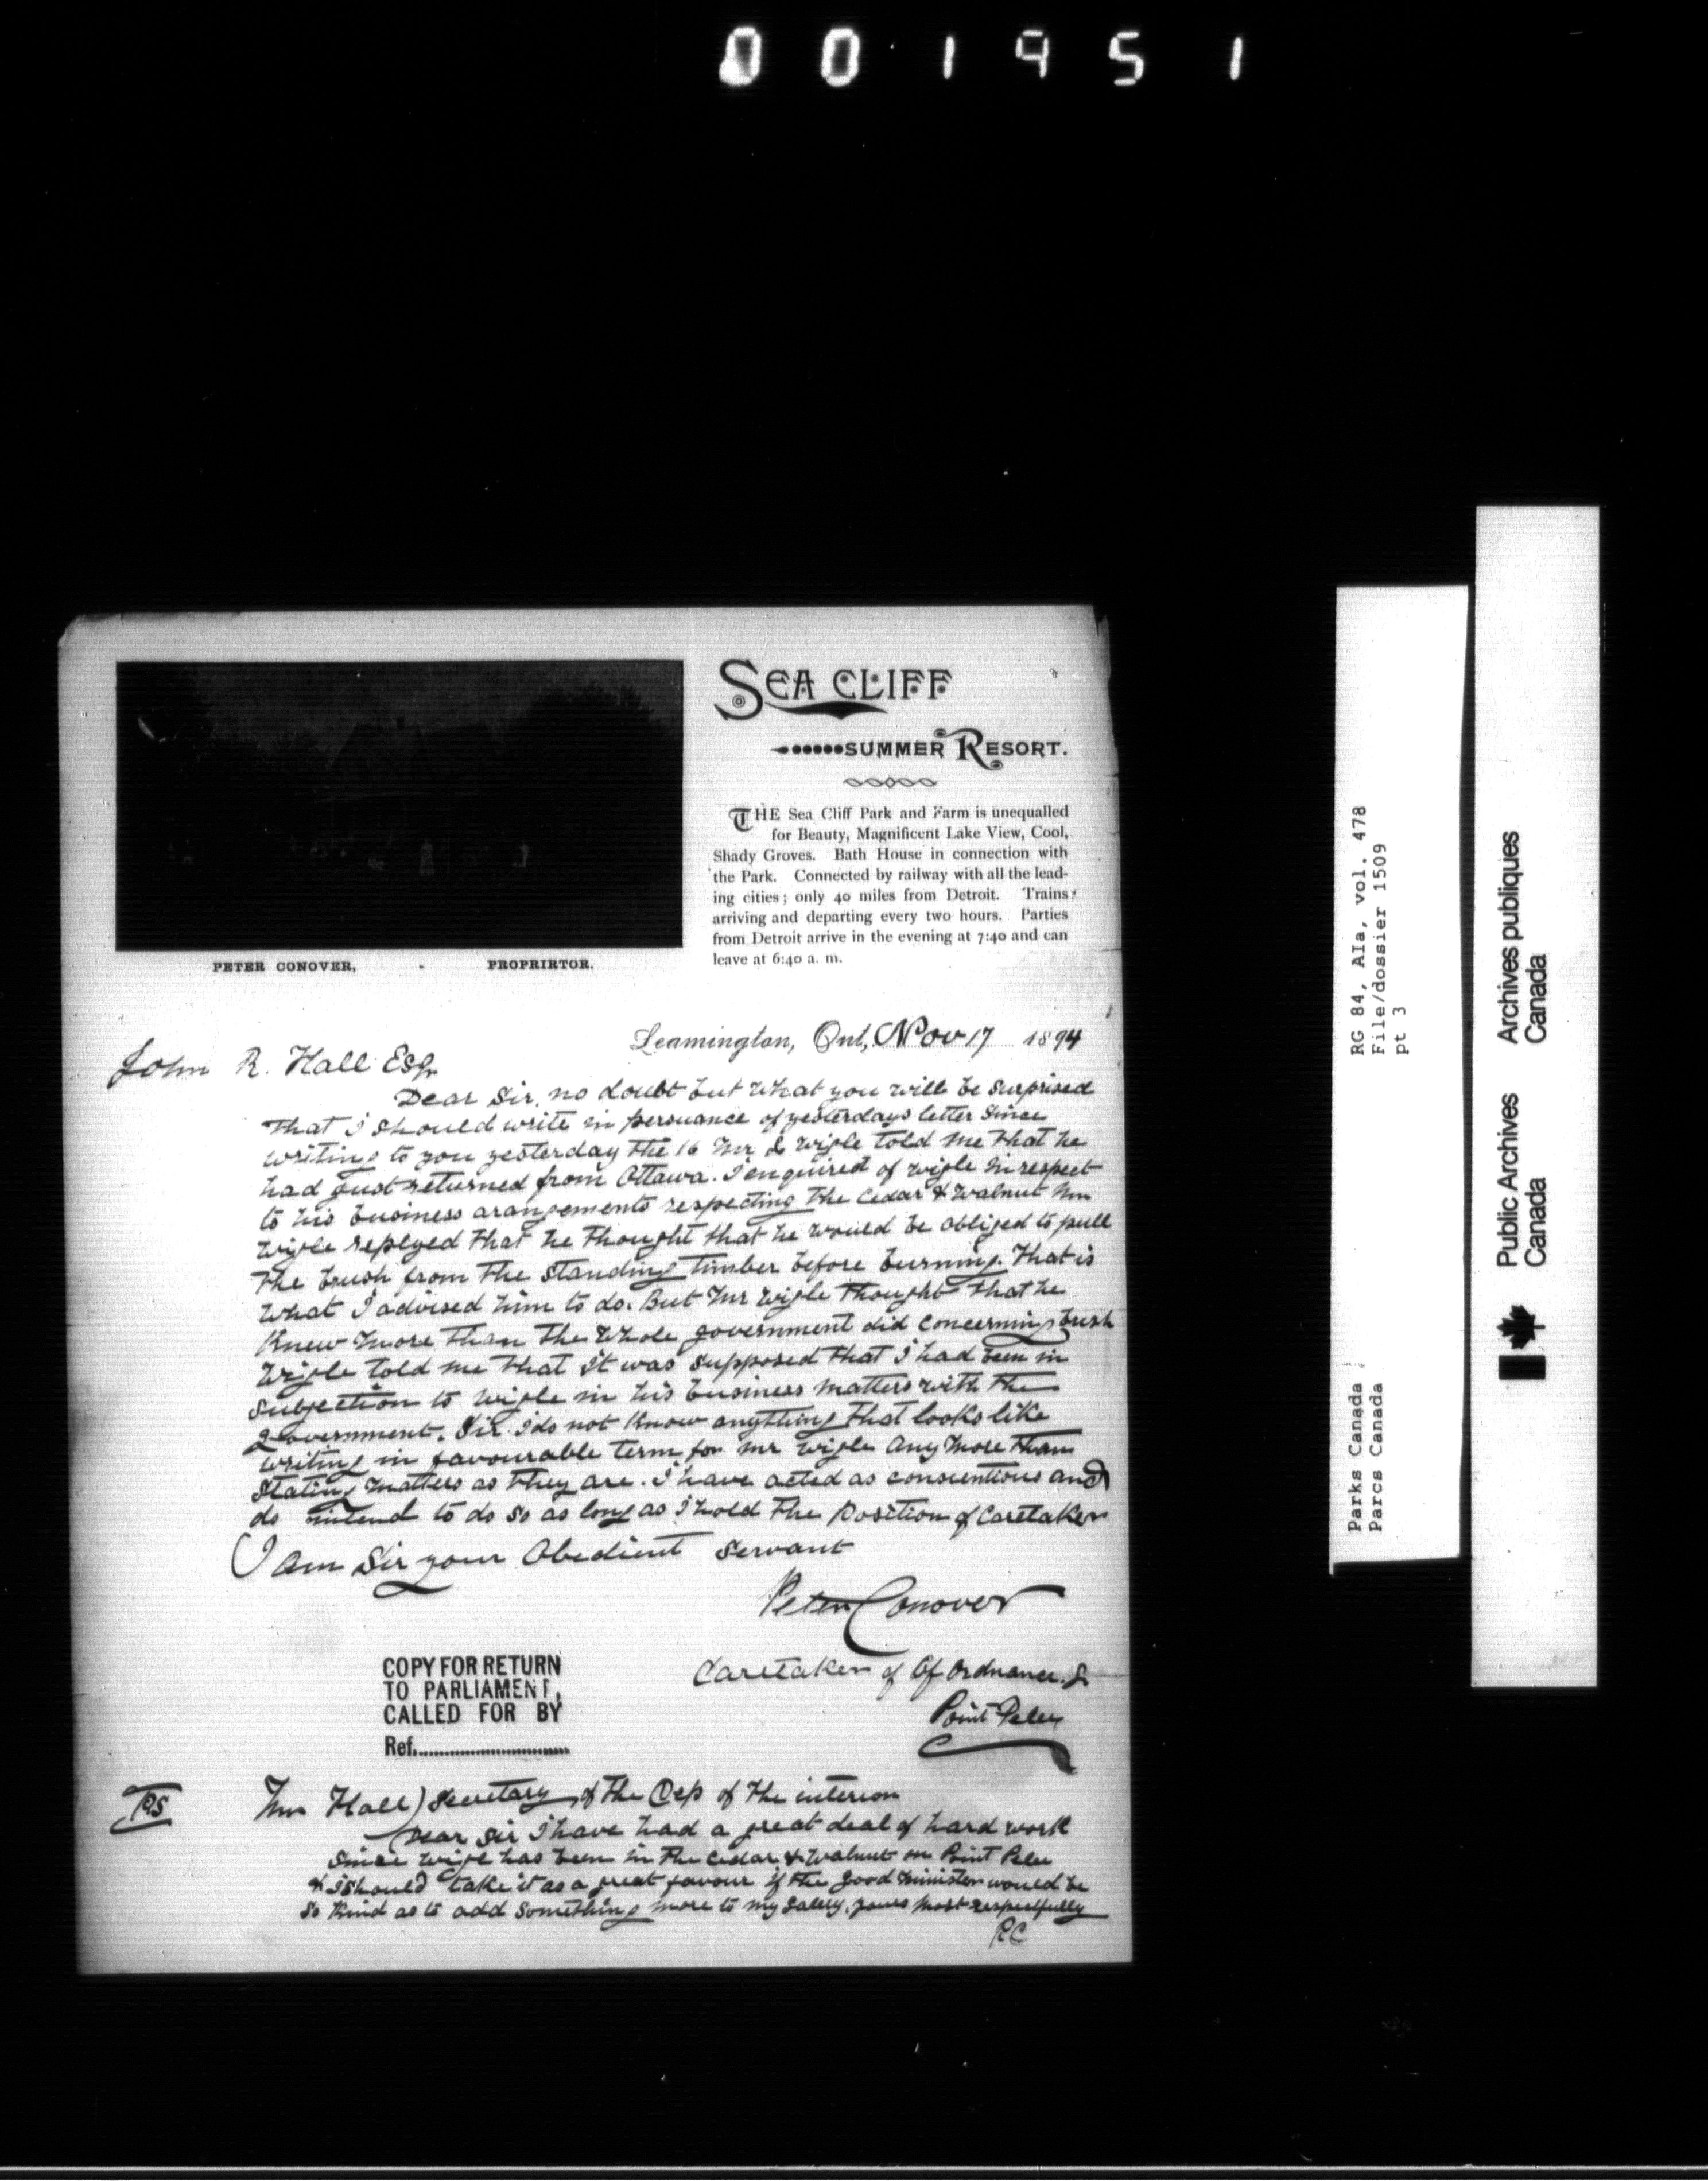 001951
SEA CLIFF
SUMMER RESORT.
THE Sea Cliff Park and Farm is unequalled
for Beauty, Magnificent Lake View, Cool,
Shady Groves. Bath House in connection with
the Park. Connected by railway with all the lead-
ing cities; only 40 miles from Detroit. Trains
arriving and departing every two hours. Parties
from Detroit arrive in the evening at 7:40 and can
leave at 6:40 a. m.
PETER CONOVER, - PROPRIRTOR.
Leamington, Ont, Nov 17 1894
John R. Hall Esq.
Dear Sir, no doubt but what you will be surprised
that I should write in persuance of yesterdays letter Since
writing to you yesterday the 16 Mr wigle told me that he
had Just returned from Ottawa. I enquired of wigle in respect
to his business arangements respecting the Cedar & walnut Mr
wigle replyed that he thought that he would be obliged to pull
the brush from the standing timber before burning. that is
what I advised him to do. But Mr wigle thought that he
Knew more than the whole government did concerning brush
wigle told me that it was supposed that I had been in
subjection to wigle in his business matters with the
Government. Sir I do not Know anything that looks like
writing in favourable term for mr wigle any more than
stating matters as they are. I have acted as consientious and
do intend to do so as long as I hold the Position of Caretaker
I am Sir your Obedient Servant
Peter Conover
Caretaker of Of Ordnance.
Point Peley
COPY FOR RETURN
TO PARLIAMENT,
CALLED FOR BY
Ref..............................
PS
Mr Hall) Secretary of the Dep of the interior
Dear Sir I have had a great deal of hard work
Since wigle has been in the Cedar & walnut on Point Pelee
& I should take it as a great favour if the good minister would be
So Kind as to add Something more to my Salery. yours most respectfully
P.C
RG 84, AIa, vol. 478
File/dossier 1509
pt 3
Parks Canada
Parcs Canada
Public Archives
Canada
Archives publiques
Canada